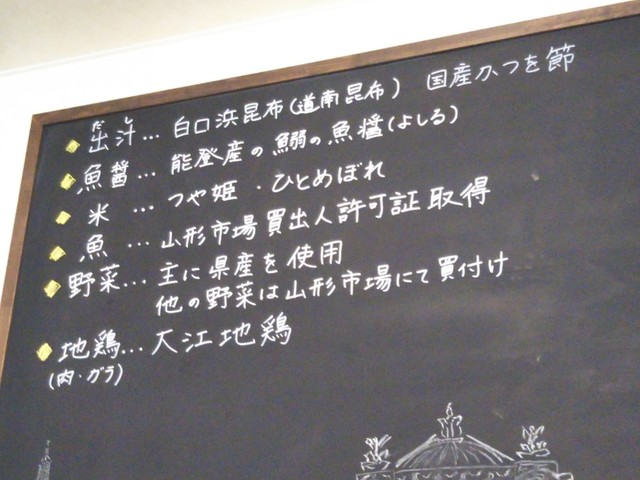 だし
◆ 出汁… 白口浜昆布(道南昆布) 国産かつを節
◆ 魚醤… 能登産の鰯の魚醤(よしる)
◆ 米 … つや姫・ひとめぼれ
◆ 魚 … 山形市場買出人許可証取得
◆ 野菜… 主に県産を使用
他の野菜は山形市場にて買付け
◆ 地鶏… 大江地鶏
(肉・ガラ)